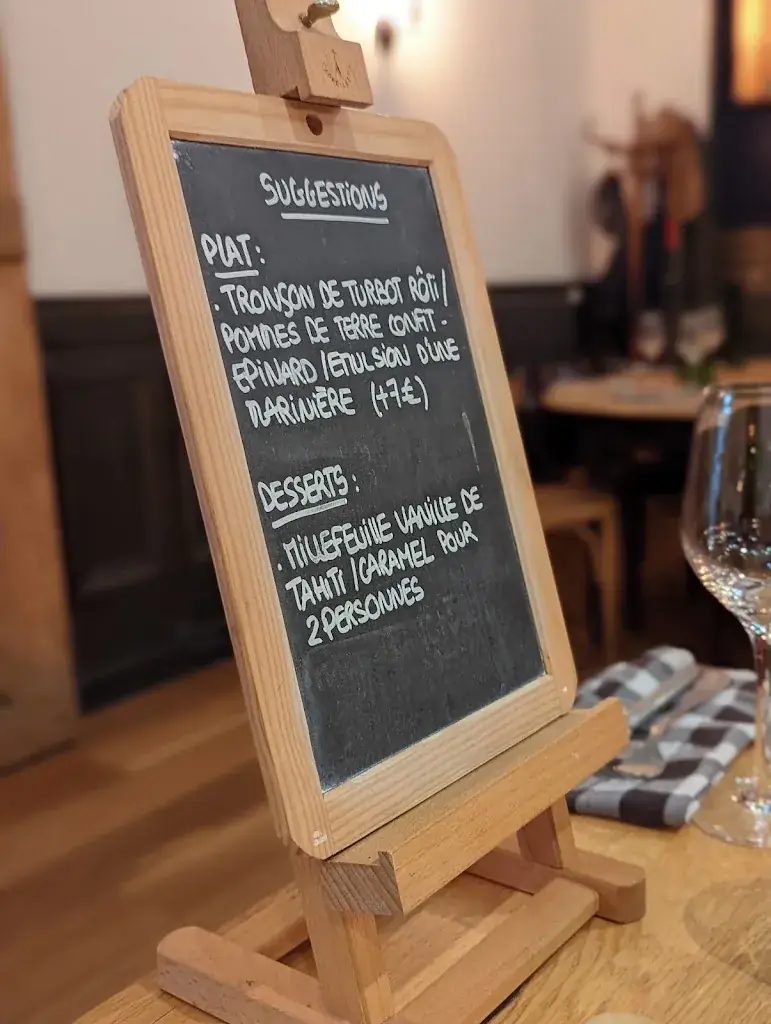 SUGGESTIONS
PLAT :
. TRONÇON DE TURBOT RÔTI /
POMMES DE TERRE CONFIT -
EPINARD / EMULSION D'UNE
MARINIÈRE (+7€)
DESSERTS :
. MILLEFEUILLE VANILLE DE
TAHITI / CARAMEL POUR
2 PERSONNES